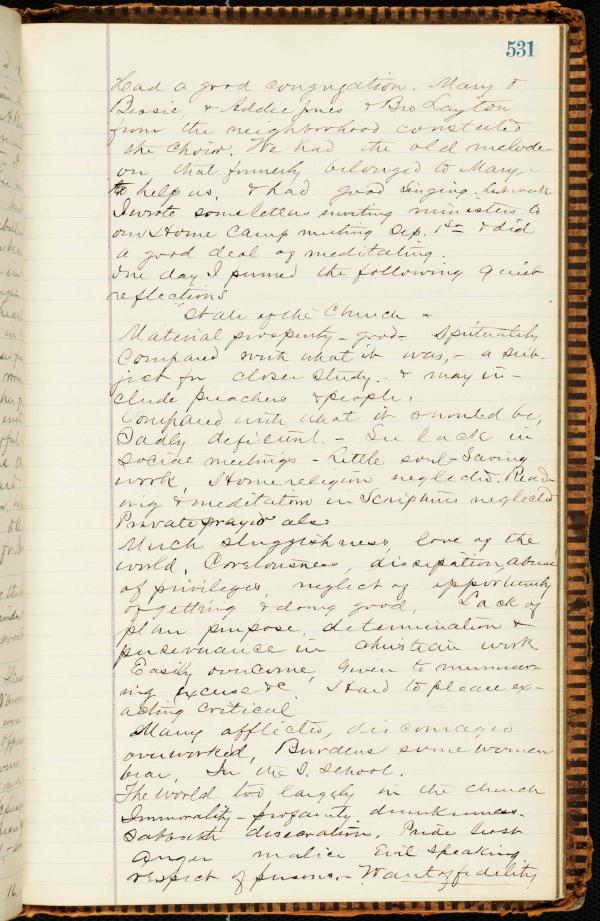 531
Had a good congregation. Mary &
Bessie & Addie Jones & Bro Layton
from the neighborhood constuted
the choir. We had the old melode-
on that formerly belonged to Mary,-
to help us, & had good singing. Last week
I wrote some letters inviting ministers to
our Home Camp meeting Sep. 1st & did
a good deal of meditating.
One day I penned the following quiet
reflections
State of the Church -
Material prosperity - good - Spiritually
Compared with what it was, - a sub-
ject for closer study. - & may in-
clude preachers & people.
Compared with what it should be,
Sadly deficient. - See lack in
social meetings - Little soul-saving
work, Home religion neglected. Read-
ing & meditation in Scriptures neglected
Private prayer also
Much sluggishness, love of the
world, Coveteousness, dissipation, abuse
of privileges, neglect of opportunity
of getting & doing good, Lack of
plan purpose, determination &
perseverance in christian work
Easily overcome, Given to murmur-
ing, excuse &c. Hard to please ex-
acting critical
Many afflicted, discouraged
overworked, Burdens some women
bear, In the S. School.
The world too largely in the church
Immorality - profanity, drunkenness.
Sabbath desecration, Pride lust
anger malice Evil speaking
respect of persons. - Want of fidelity